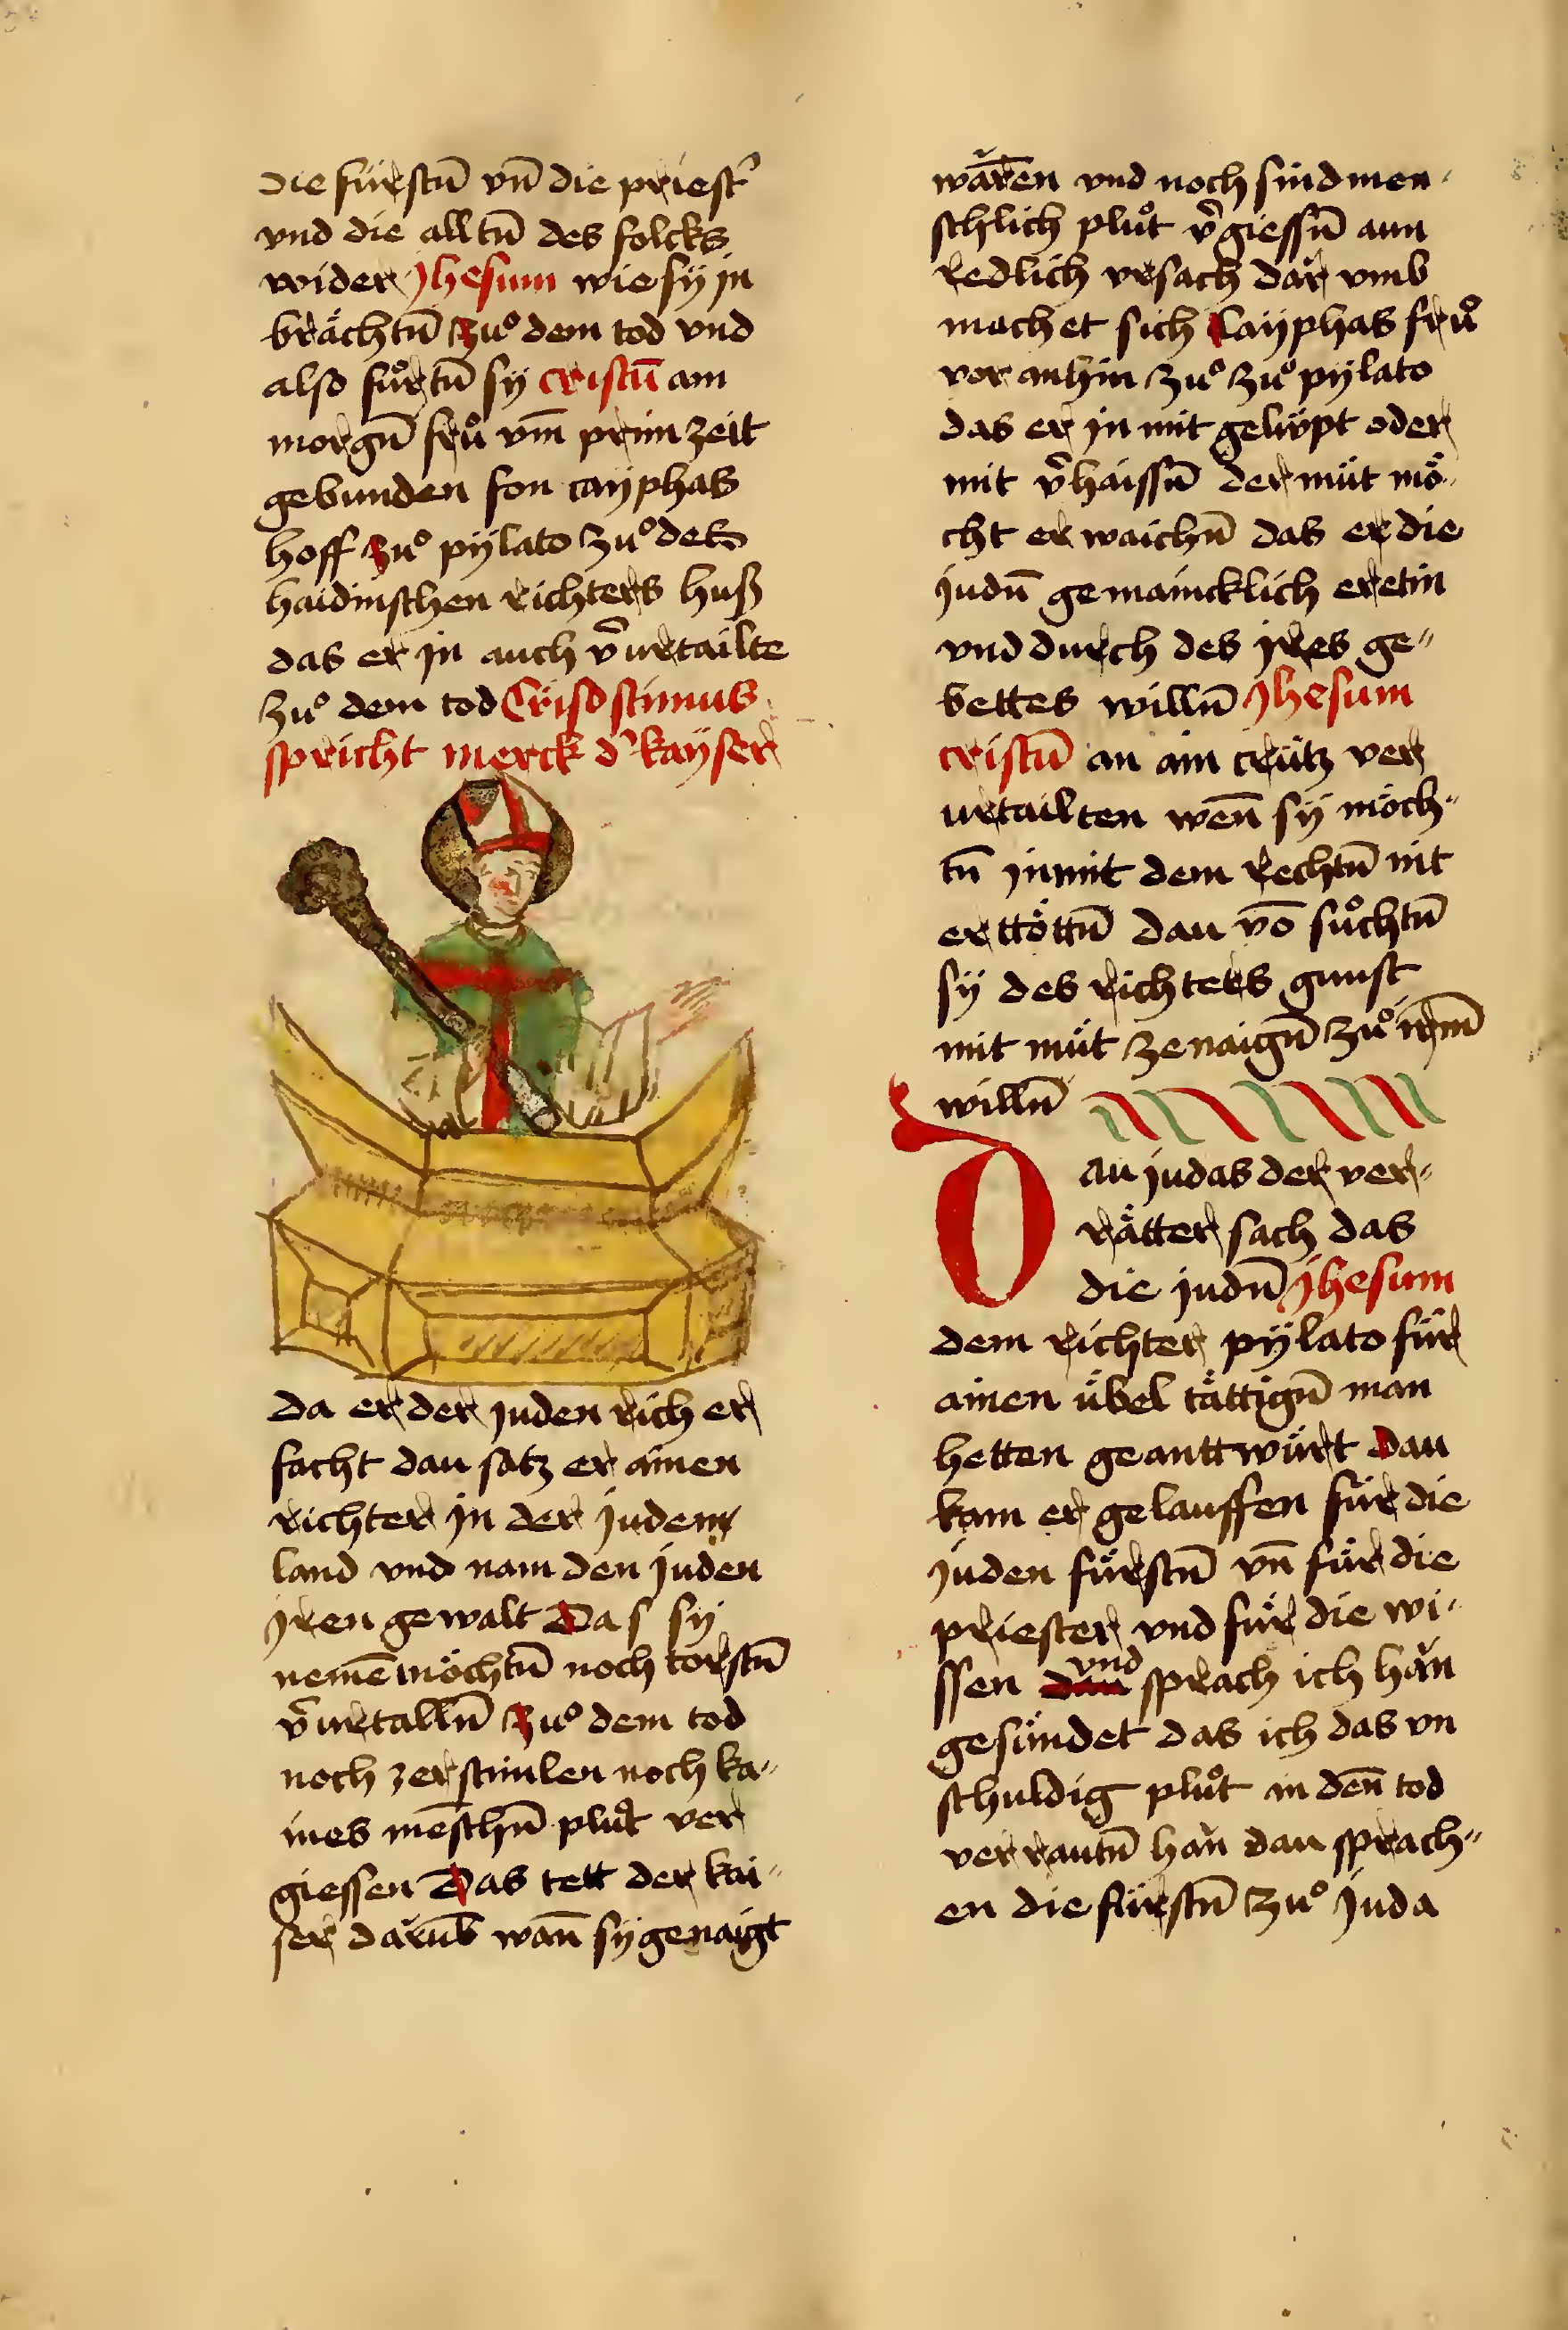 Die fürstū vn̄ die priest'
vnd die alltū des folcks
wider Jhesum wie sÿ jn
brächtū zuͦ dem tod vnd
also fuͦrtū sÿ cristū am
morgū fruͦ vm̄ prim zeit
gebunden fon cayphas
hoff zuͦ pÿlato zuͦ des
haidinschen richters huß
das er jn auch v̄urtailte
zuͦ dem tod Crisostimus
spricht merck d' kaÿser
da er der juden rich er
facht dau satz er ainen
richter jn der juden
land vnd nam den juden
jren gewalt Das sÿ
nemē möchtū noch torstū
v̄urtallū zuͦ dem tod
noch zerstinlen noch ka„
ines mēschū pluͦt ver
giessen Das tett der kai„
ser darūb wan̄ sÿ genaigt
wāren vnd noch sind men„
schlich pluͦt v̄giessū aun
redlich vrsach dar vmb
machet sich Cayphas fruͦ
vor anhin zuͦ zuͦ pÿlato
das er jn mit gelüpt oder
mit v̄haissū der müt mö„
cht er waichū das er die
judū gemaincklich eretin
vnd durch des jres ge„
bettes willū Jhesum
cristū an aim crütz ver
urtailten wen̄ sÿ möch„
tū jn mit dem rechtū nit
erttöttū dau vō suͦchtū
sÿ des richters gunst
mit müt ze naigū zuͦ irm̄
willū
Dau judas der ver„
rätter sach das
die judū Jhesum
dem richter pÿlato für
ainen übel tättigū man
hetten geanttwürt Dau
kam er gelauffen für die
juden fürstū vn̄ für die
priester vnd für die wi„
ssen vnd sprach ich hǎn
gesündet das ich das vn
schuldig pluͦt in den̄ tod
verrautū han dau sprach„
en die fürstū zuͦ juda